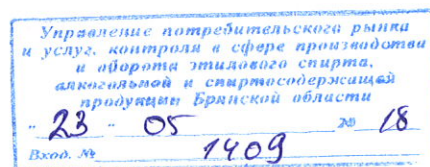 Управление потребительского рынка
и услуг, контроля в сфере производства
и оборота этилового спирта,
алкогольной и спиртосодержащей
продукции Брянской области
" 23 " 05 20 18
Вход. № 1409